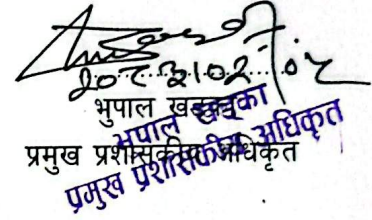 भुपाल खड्का
प्रमुख प्रशासकीय अधिकृत
भुपाल खड्का
प्रमुख प्रशासकीय अधिकृत